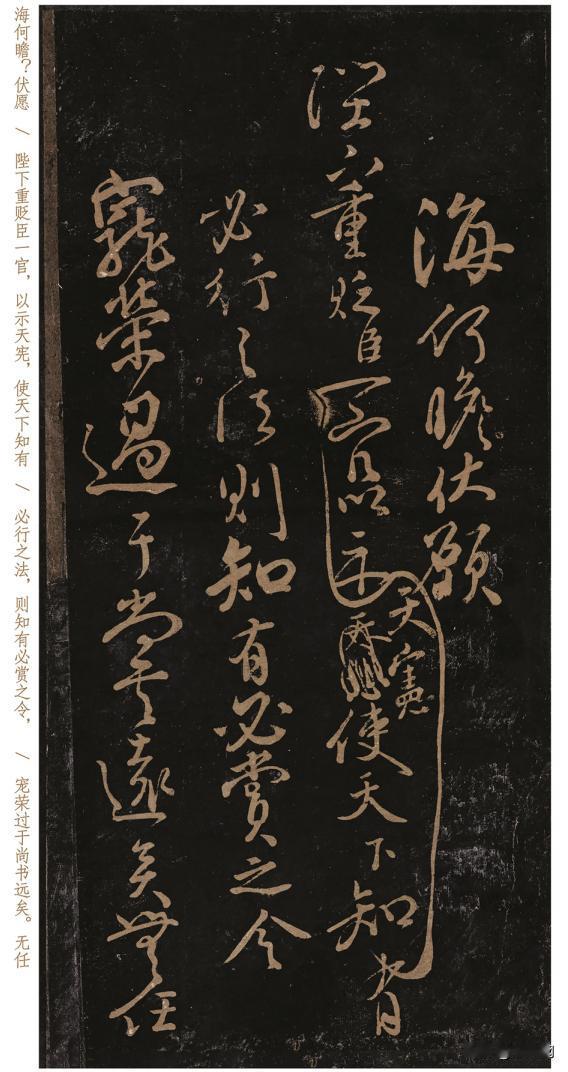 海何瞻伏願
陛下重貶臣一官以示天憲使天下知有
必行之法則知有必賞之令
寵榮過于尚書遠矣無任
海何瞻？伏愿 / 陛下重贬臣一官，以示天宪，使天下知有 / 必行之法，则知有必赏之令， / 宠荣过于尚书远矣。无任